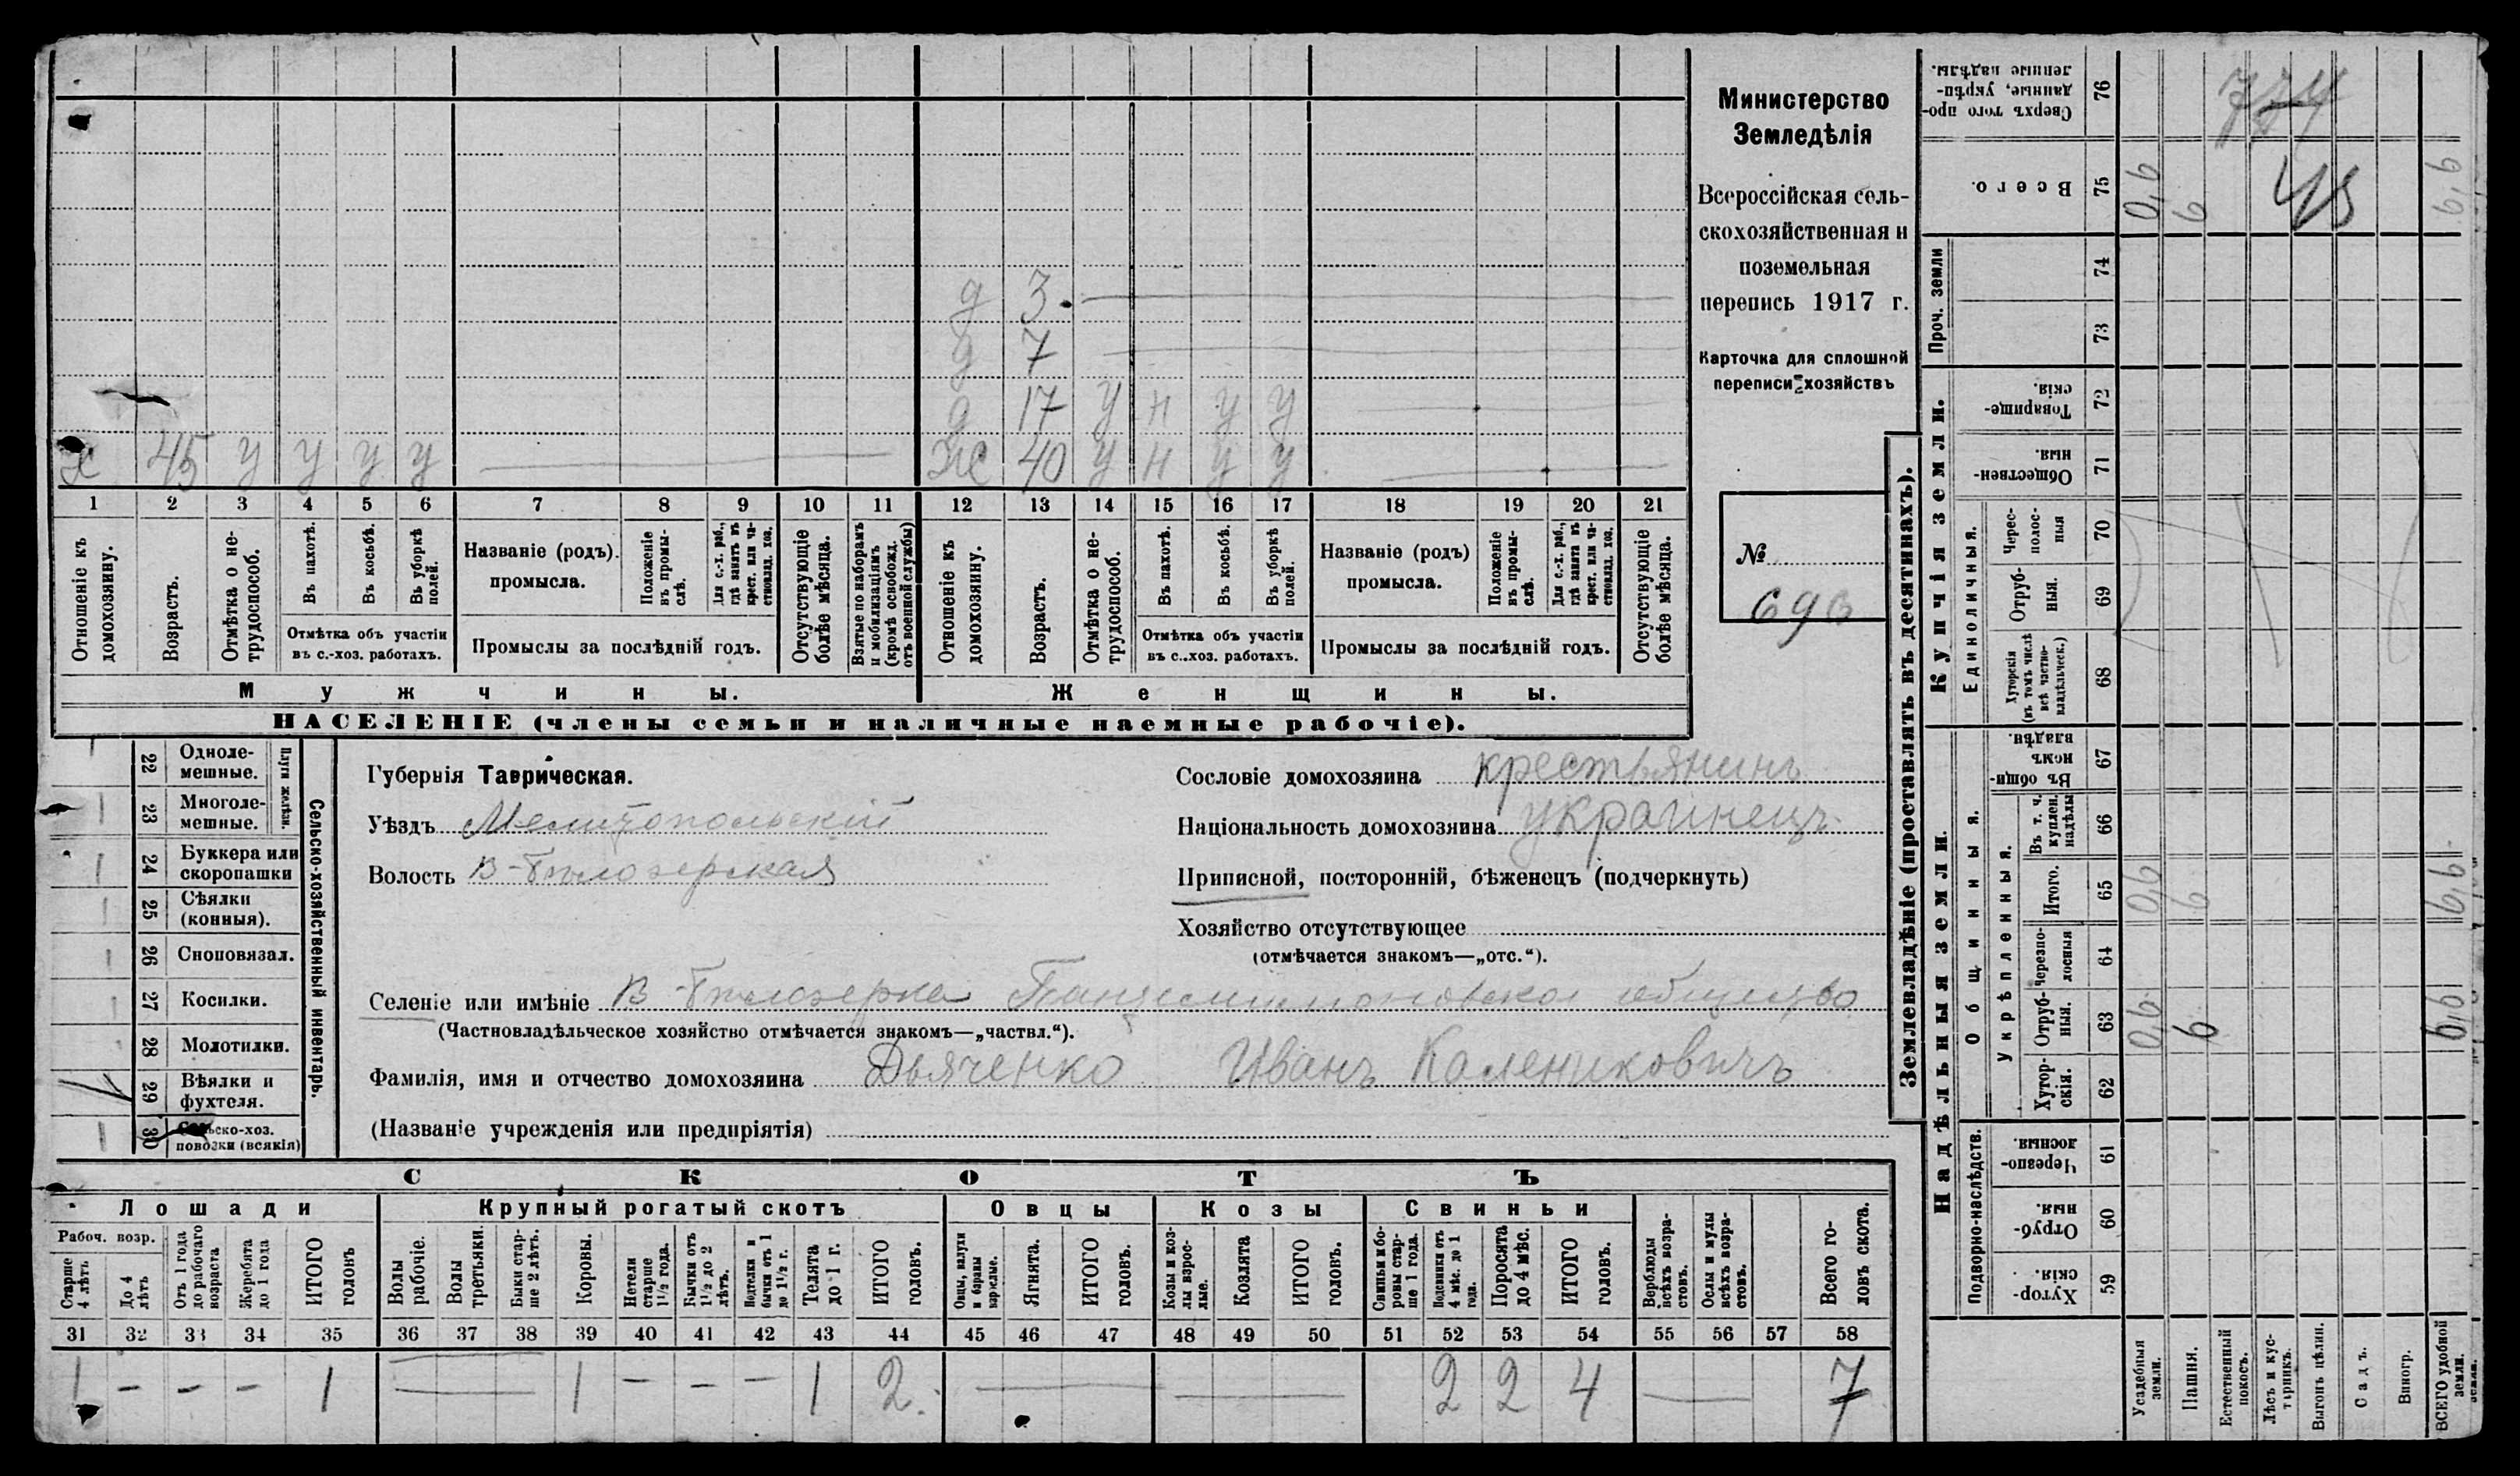 Министерство
Земледѣлія
Всероссійская сель-
скохозяйственная и
поземельная
перепись 1917 г.
Карточка для сплошной
переписи хозяйствъ
№
690
д 3
д 7
д 17 У Н У У
х 45 У У У У
Ж 40 У Н У У
1 2 3 4 5 6 7 8 9 10 11 12 13 14 15 16 17 18 19 20 21
Отношеніе къ домохозяину.
Возрастъ.
Отмѣтка о не-трудоспособ.
Въ пахотѣ.
Въ косьбѣ.
Въ уборкѣ полей.
Отмѣтка объ участіи
въ с.-хоз. работахъ.
Названіе (родъ).
промысла.
Положеніе въ промы-слѣ.
Для с.-х. раб., гдѣ занятъ въ крест. или ча-стновлад. хоз.
Промыслы за послѣдній годъ.
Отсутствующіе болѣе мѣсяца.
Взятые по наборамъ и мобилизаціямъ (кромѣ освобожд. отъ военной службы)
Отношеніе къ домохозяину.
Возрастъ.
Отмѣтка о не-трудоспособ.
Въ пахотѣ.
Въ косьбѣ.
Въ уборкѣ полей.
Отмѣтка объ участіи
въ с.-хоз. работахъ.
Названіе (родъ)
промысла.
Положеніе въ промы-слѣ.
Для с.-х. раб., гдѣ занята въ крест. или ча-стновлад. хоз.
Промыслы за послѣдній годъ.
Отсутствующіе болѣе мѣсяца.
Мужчины.
Женщины.
НАСЕЛЕНІЕ (члены семьи и наличные наемные рабочіе).
Сельско-хозяйственный инвентарь.
Плуги желѣзн.
22 Одноле-мешные.
23 Многоле-мешные.
24 Буккера или скоропашки
25 Сѣялки (конныя).
26 Сноповязал.
27 Косилки.
28 Молотилки.
29 Вѣялки и фухтеля.
30 Сельско-хоз. повозки (всякія)
Губернія Таврическая.
Уѣздъ Мелитопольскій
Волость В-Бѣлозерская
Сословіе домохозяина крестьянинъ
Національность домохозяина украинецъ
Приписной, посторонній, бѣженецъ (подчеркнуть)
Хозяйство отсутствующее
(отмѣчается знакомъ—„отс.“).
Селеніе или имѣніе В-Бѣлозерка общество
(Частновладѣльческое хозяйство отмѣчается знакомъ—„частвл.“).
Фамилія, имя и отчество домохозяина Дьяченко Иванъ Калениковичъ
(Названіе учрежденія или предпріятія)
СКОТЪ
Лошади
Крупный рогатый скотъ
Овцы
Козы
Свиньи
Рабоч. возр.
Старше 4 лѣтъ
До 4 лѣтъ
Отъ 1 года до рабочаго возраста
Жеребята до 1 года
ИТОГО головъ
Волы рабочіе.
Волы третьяки.
Быки стар-ше 2 лѣтъ.
Коровы.
Нетели старше 1½ года.
Бычки отъ 1½ до 2 лѣтъ.
Подтелки и бычки отъ 1 до 1½ г.
Телята до 1 г.
ИТОГО головъ.
Овцы, валухи и бараны взрослые.
Ягнята.
ИТОГО головъ.
Козы и коз-лы взрос-лые.
Козлята
ИТОГО головъ.
Свиньи и бо-ровы стар-ше 1 года.
Подсвинки отъ 4 мѣс. до 1 года.
Поросята до 4 мѣс.
ИТОГО головъ.
Верблюды всѣхъ возра-стовъ.
Ослы и мулы всѣхъ возра-стовъ.
Всего го-ловъ скота.
31 32 33 34 35 36 37 38 39 40 41 42 43 44 45 46 47 48 49 50 51 52 53 54 55 56 57 58
1 - - - 1 — 1 - - - 1 2. — — 2 2 4 — 7
Землевладѣніе (проставлять въ десятинахъ).
Купчія земли.
Надѣльныя земли.
Проч. земли
Единоличныя.
Общинныя.
Укрѣпленныя.
Подворно-наслѣдств.
Сверхъ того про-данные, укрѣп-ленные надѣлы. 76
Всего. 75 0,6 6 6,6
74
73
Товарище-скія. 72
Обществен-ныя. 71
Черес-полос-ныя 70
Отруб-ныя. 69
Хуторскія (въ томъ числѣ всѣ частно-владѣльческ.) 68
Въ общи-номъ владѣн. 67
Въ т. ч. куплен. надѣлы 66
Итого. 65 0,6 6 6,6
Черезпо-лосныя 64
Отруб-ныя. 63 0,6 6 6,6
Хутор-скія. 62
Черезпо-лосныя. 61
Отруб-ныя. 60
Хутор-скія. 59
Усадебныя земли.
Пашня.
Естественный покосъ.
Лѣсъ и кус-тарникъ.
Выгонъ цѣлин.
Садъ.
Виногр.
ВСЕГО удобной земли.
45